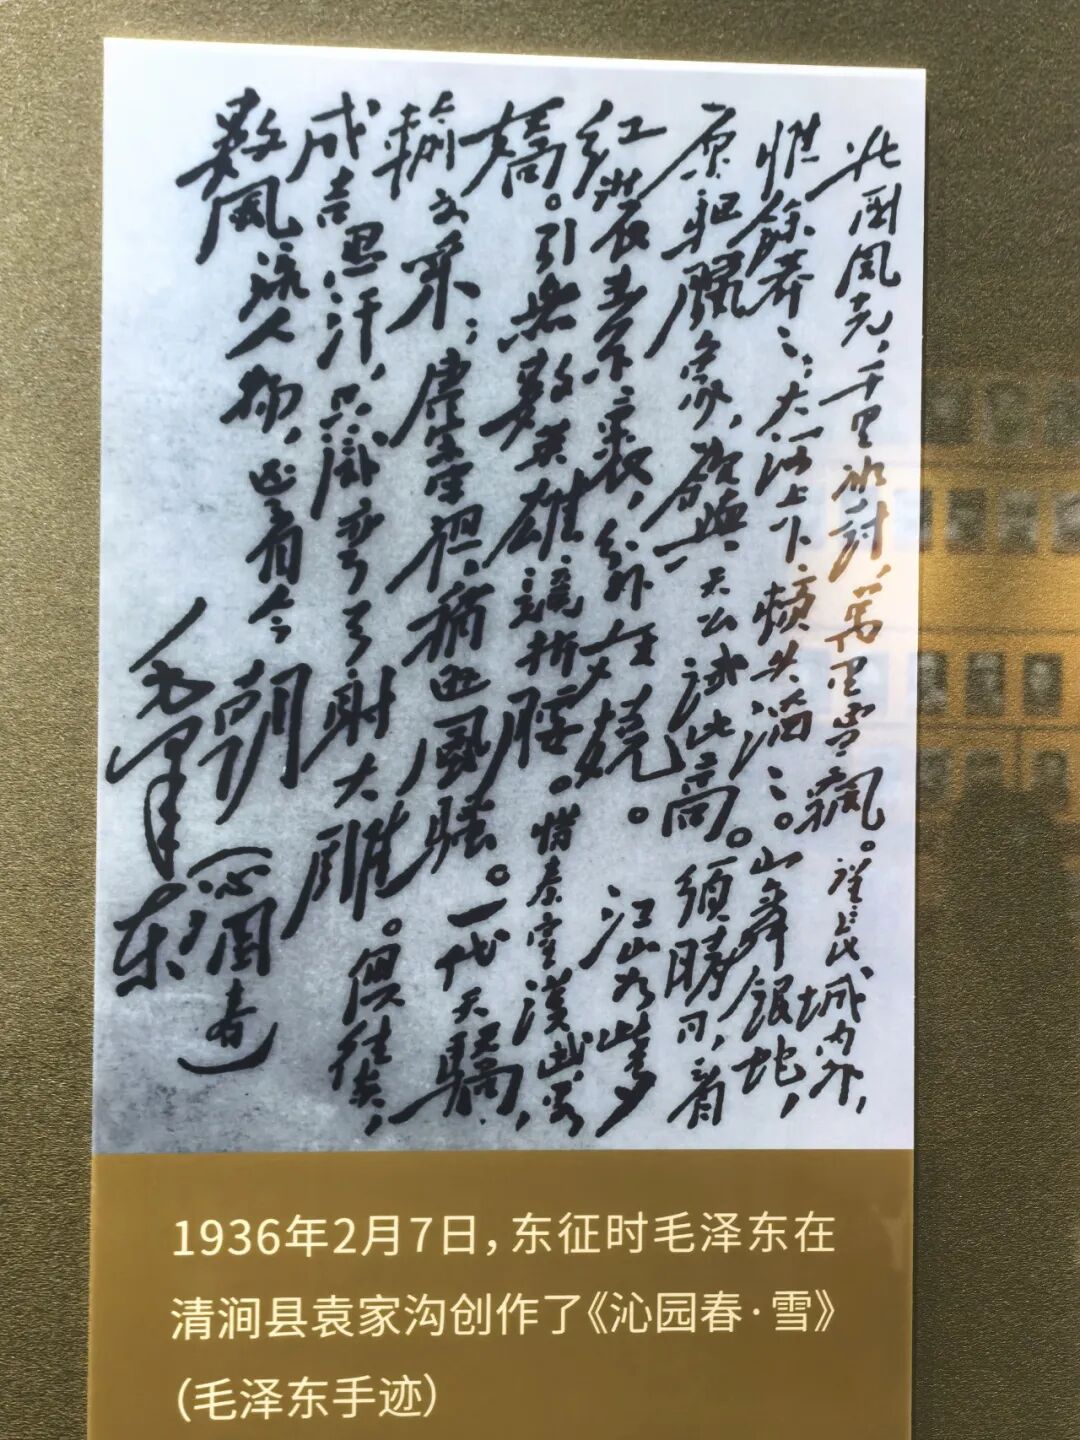 北国風光，千里冰封，萬里雪飄。望長城内外，
惟餘莽ミ；大河上下，頓失滔ミ。山舞銀蛇，
原驱臘象，欲與天公試比高。須晴日，看
红装素裹，分外妖嬈。江山如此多
嬌。引無數英雄競折腰。惜秦皇漢武，略
輸文采；唐宗宋祖，稍逊風騷。一代天驕，
成吉思汗，只識弯弓射大雕。俱往矣，
數風流人物，还看今朝
（沁園春）
毛泽东
1936年2月7日，东征时毛泽东在
清涧县袁家沟创作了《沁园春·雪》
（毛泽东手迹）